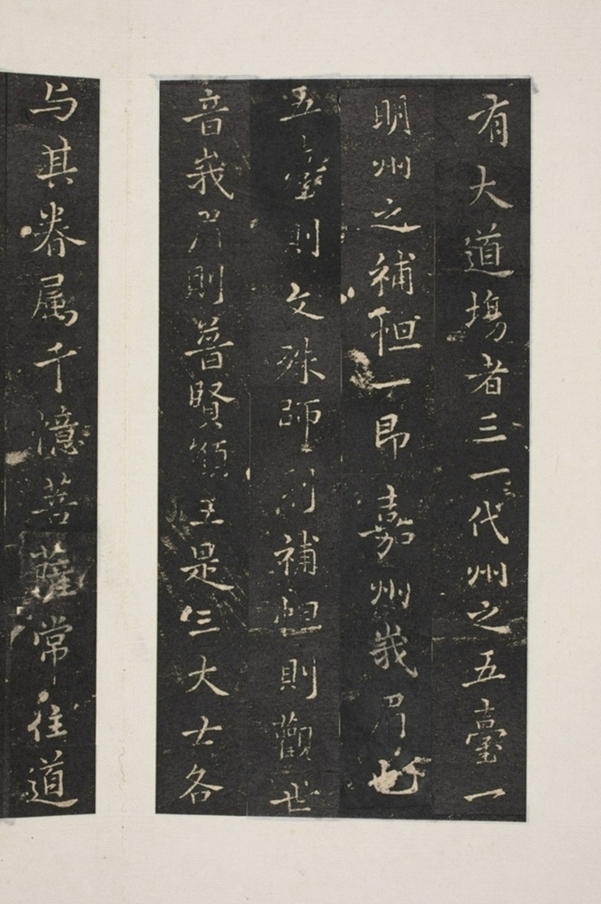 有大道場者三一代州之五臺一
明州之補怛一即嘉州峩眉也
五臺則文殊師利補怛則觀世
音峩眉則普賢願王是三大士各
与其眷属千億菩薩常住道